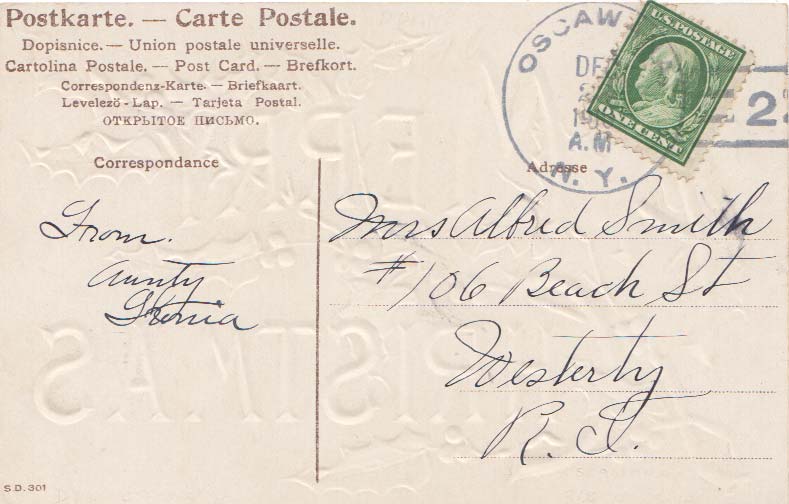 Postkarte. — Carte Postale.
Dopisnice. — Union postale universelle.
Cartolina Postale. — Post Card. — Brefkort.
Correspondenz-Karte. — Briefkaart.
Levelező-Lap. — Tarjeta Postal.
ОТКРЫТОЕ ПИСЬМО.
OSCAW
DE
A.M
N. Y.
2
U.S. POSTAGE
ONE CENT
Correspondance
Adresse
From.
Aunty
Mrs Albred Smith
#106 Beach St
Westerty
R. I.
S.D. 301